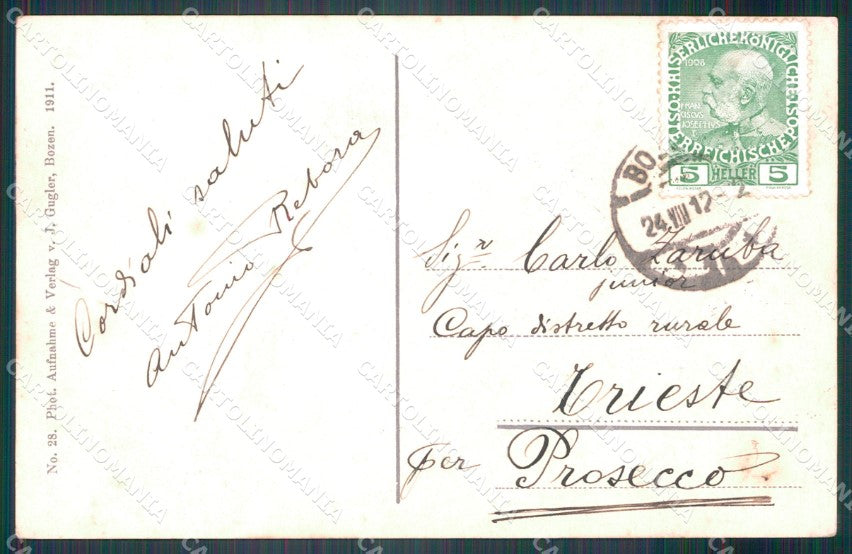 No. 28. Phot. Aufnahme & Verlag v. J. Gugler, Bozen. 1911.
Cordiali saluti
Antonio Rebora
KAISERLICHEKÖNIGLICHE
ÖSTERREICHISCHE POST
1908
FRAN
CISCVS
JOSEPH
I
5 HELLER 5
BO
24 VIII 12
Sig.r Carlo Zaruba
junior
Capo distretto rurale
Trieste
per Prosecco
CARTOLINOMANIA